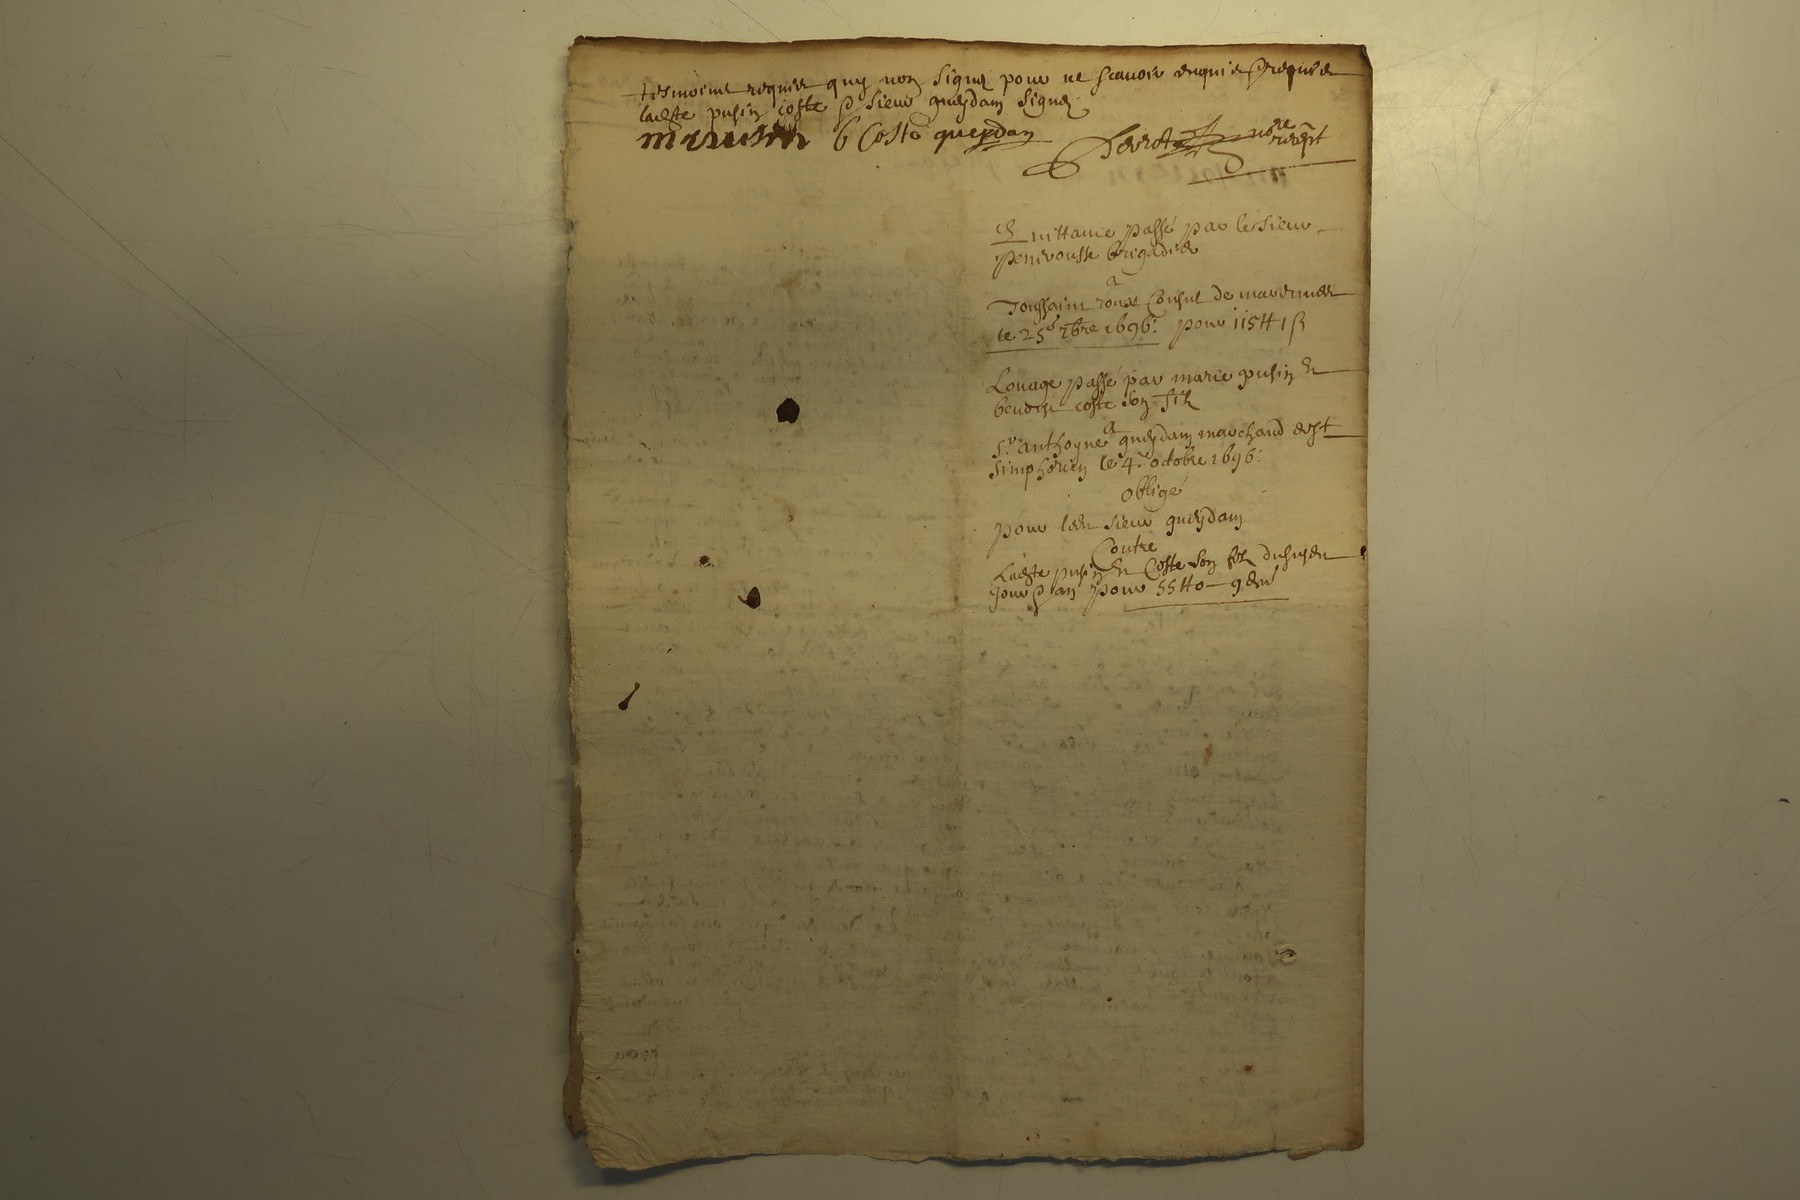 tesmoins requier quy non signé pour ne scavoir enquis & requis
ladite pusin coste & sieur queydan signés
b Coste queydan Perret no.re recept
Quittance passé par le sieur
penivousse brigadier
a
Toussaint roux Consul de
le 25e 7bre 1696. pour 115 tt 1 ß
Louage passé par marie pusin et
benoist coste son filz
a
Sr. anthoyne queydan marchand de St
Simphorien le 4.e octobre 1696.
obligé
pour led sieur queydan
Contre
Ladite pusin et Coste son filz
jour & an pour 55 tt 0